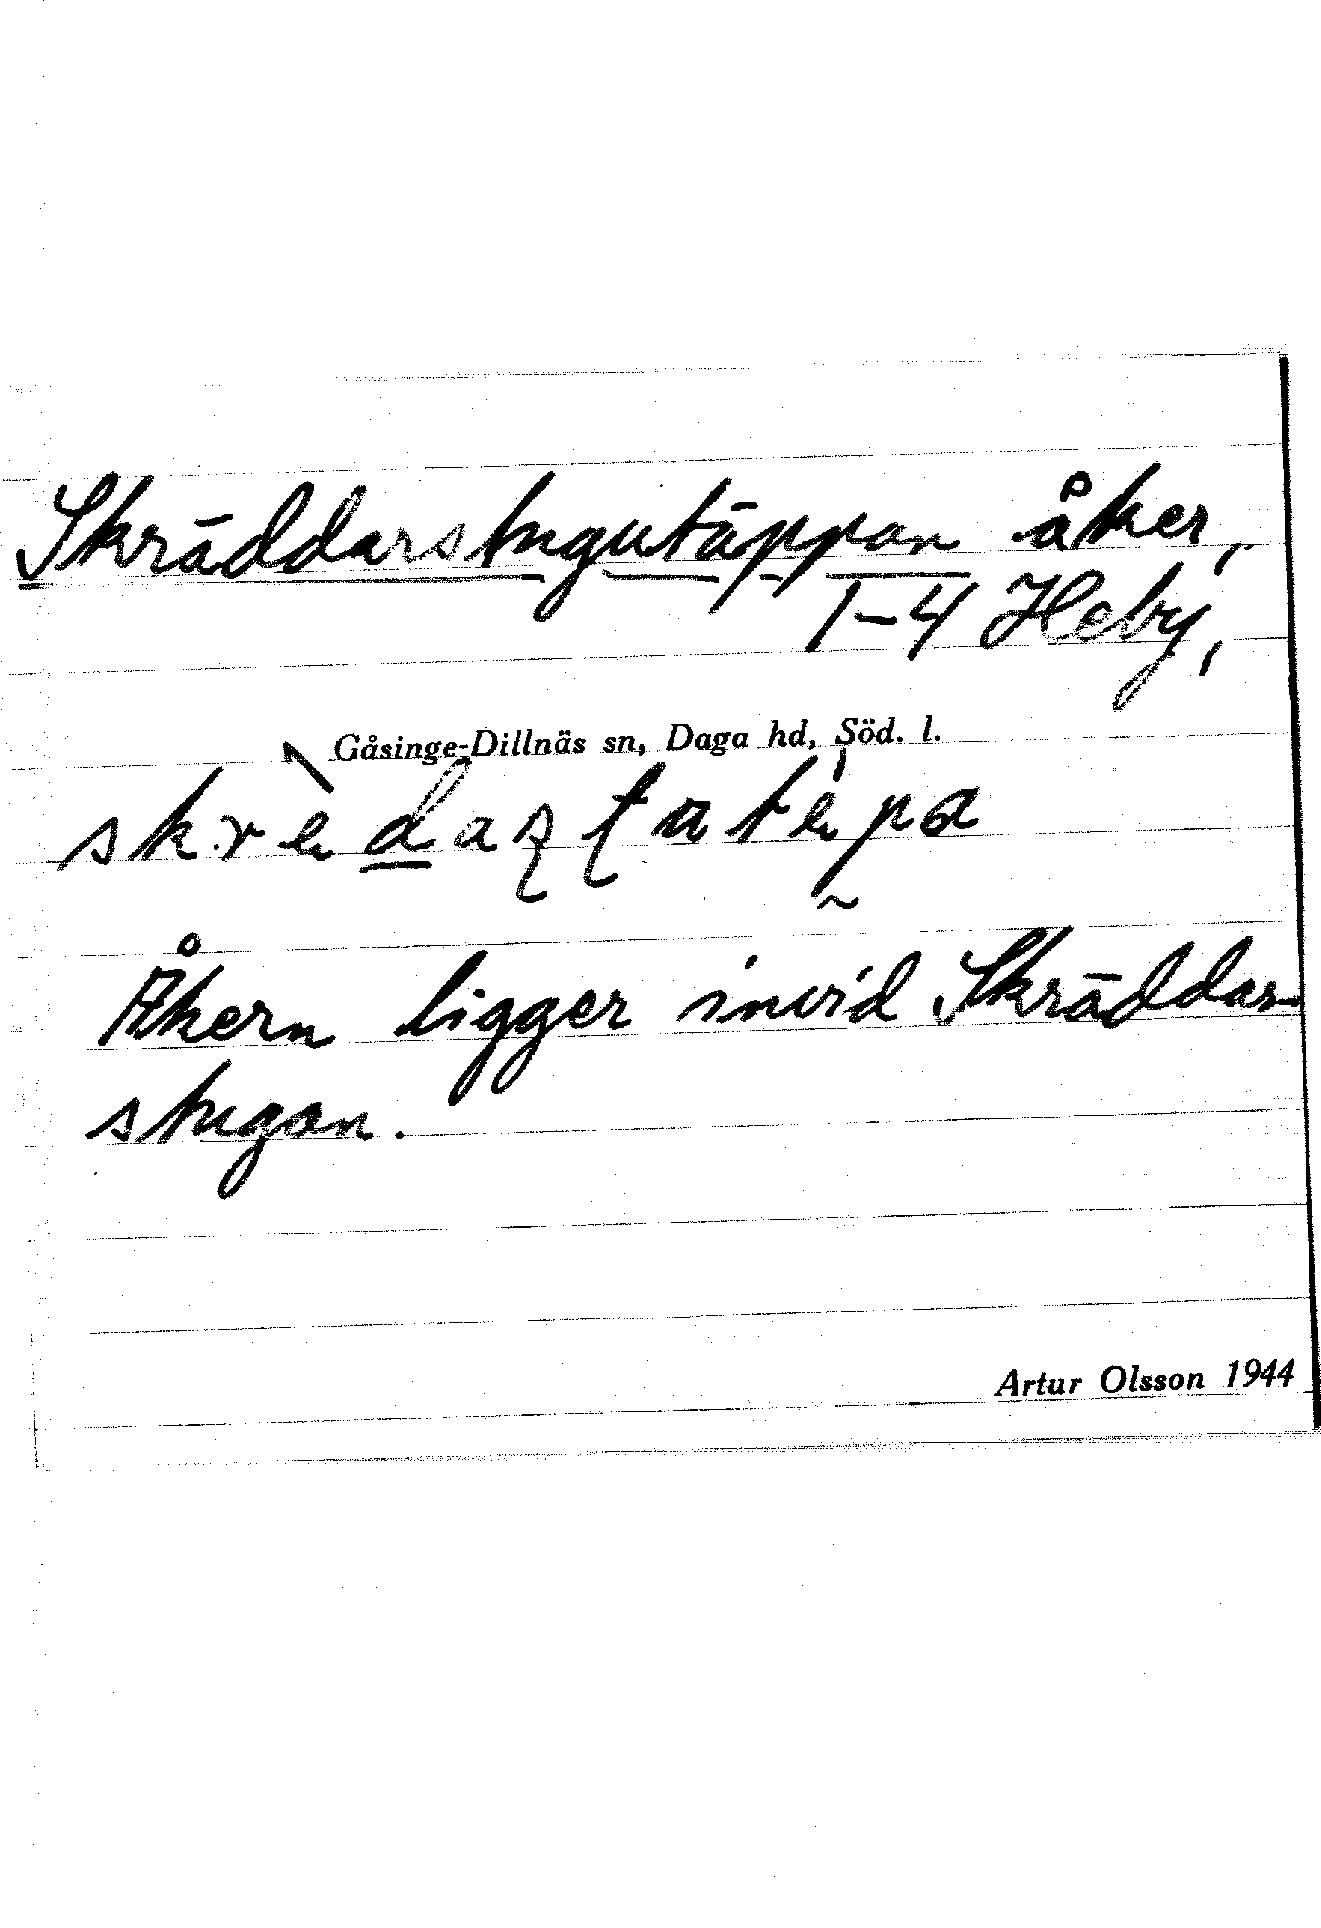 Skräddarstugutäppan åker,
1-4 Heby,
Gåsinge-Dillnäs sn, Daga hd, Söd. l.
Åkern ligger invid Skräddar-
stugan.
Artur Olsson 1944